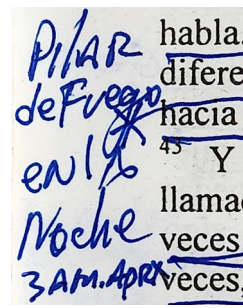 PilAR
de Fuego
en lA
Noche
3 AM. APRX
habla
difere
hacia
45 Y
llamad
veces
veces,